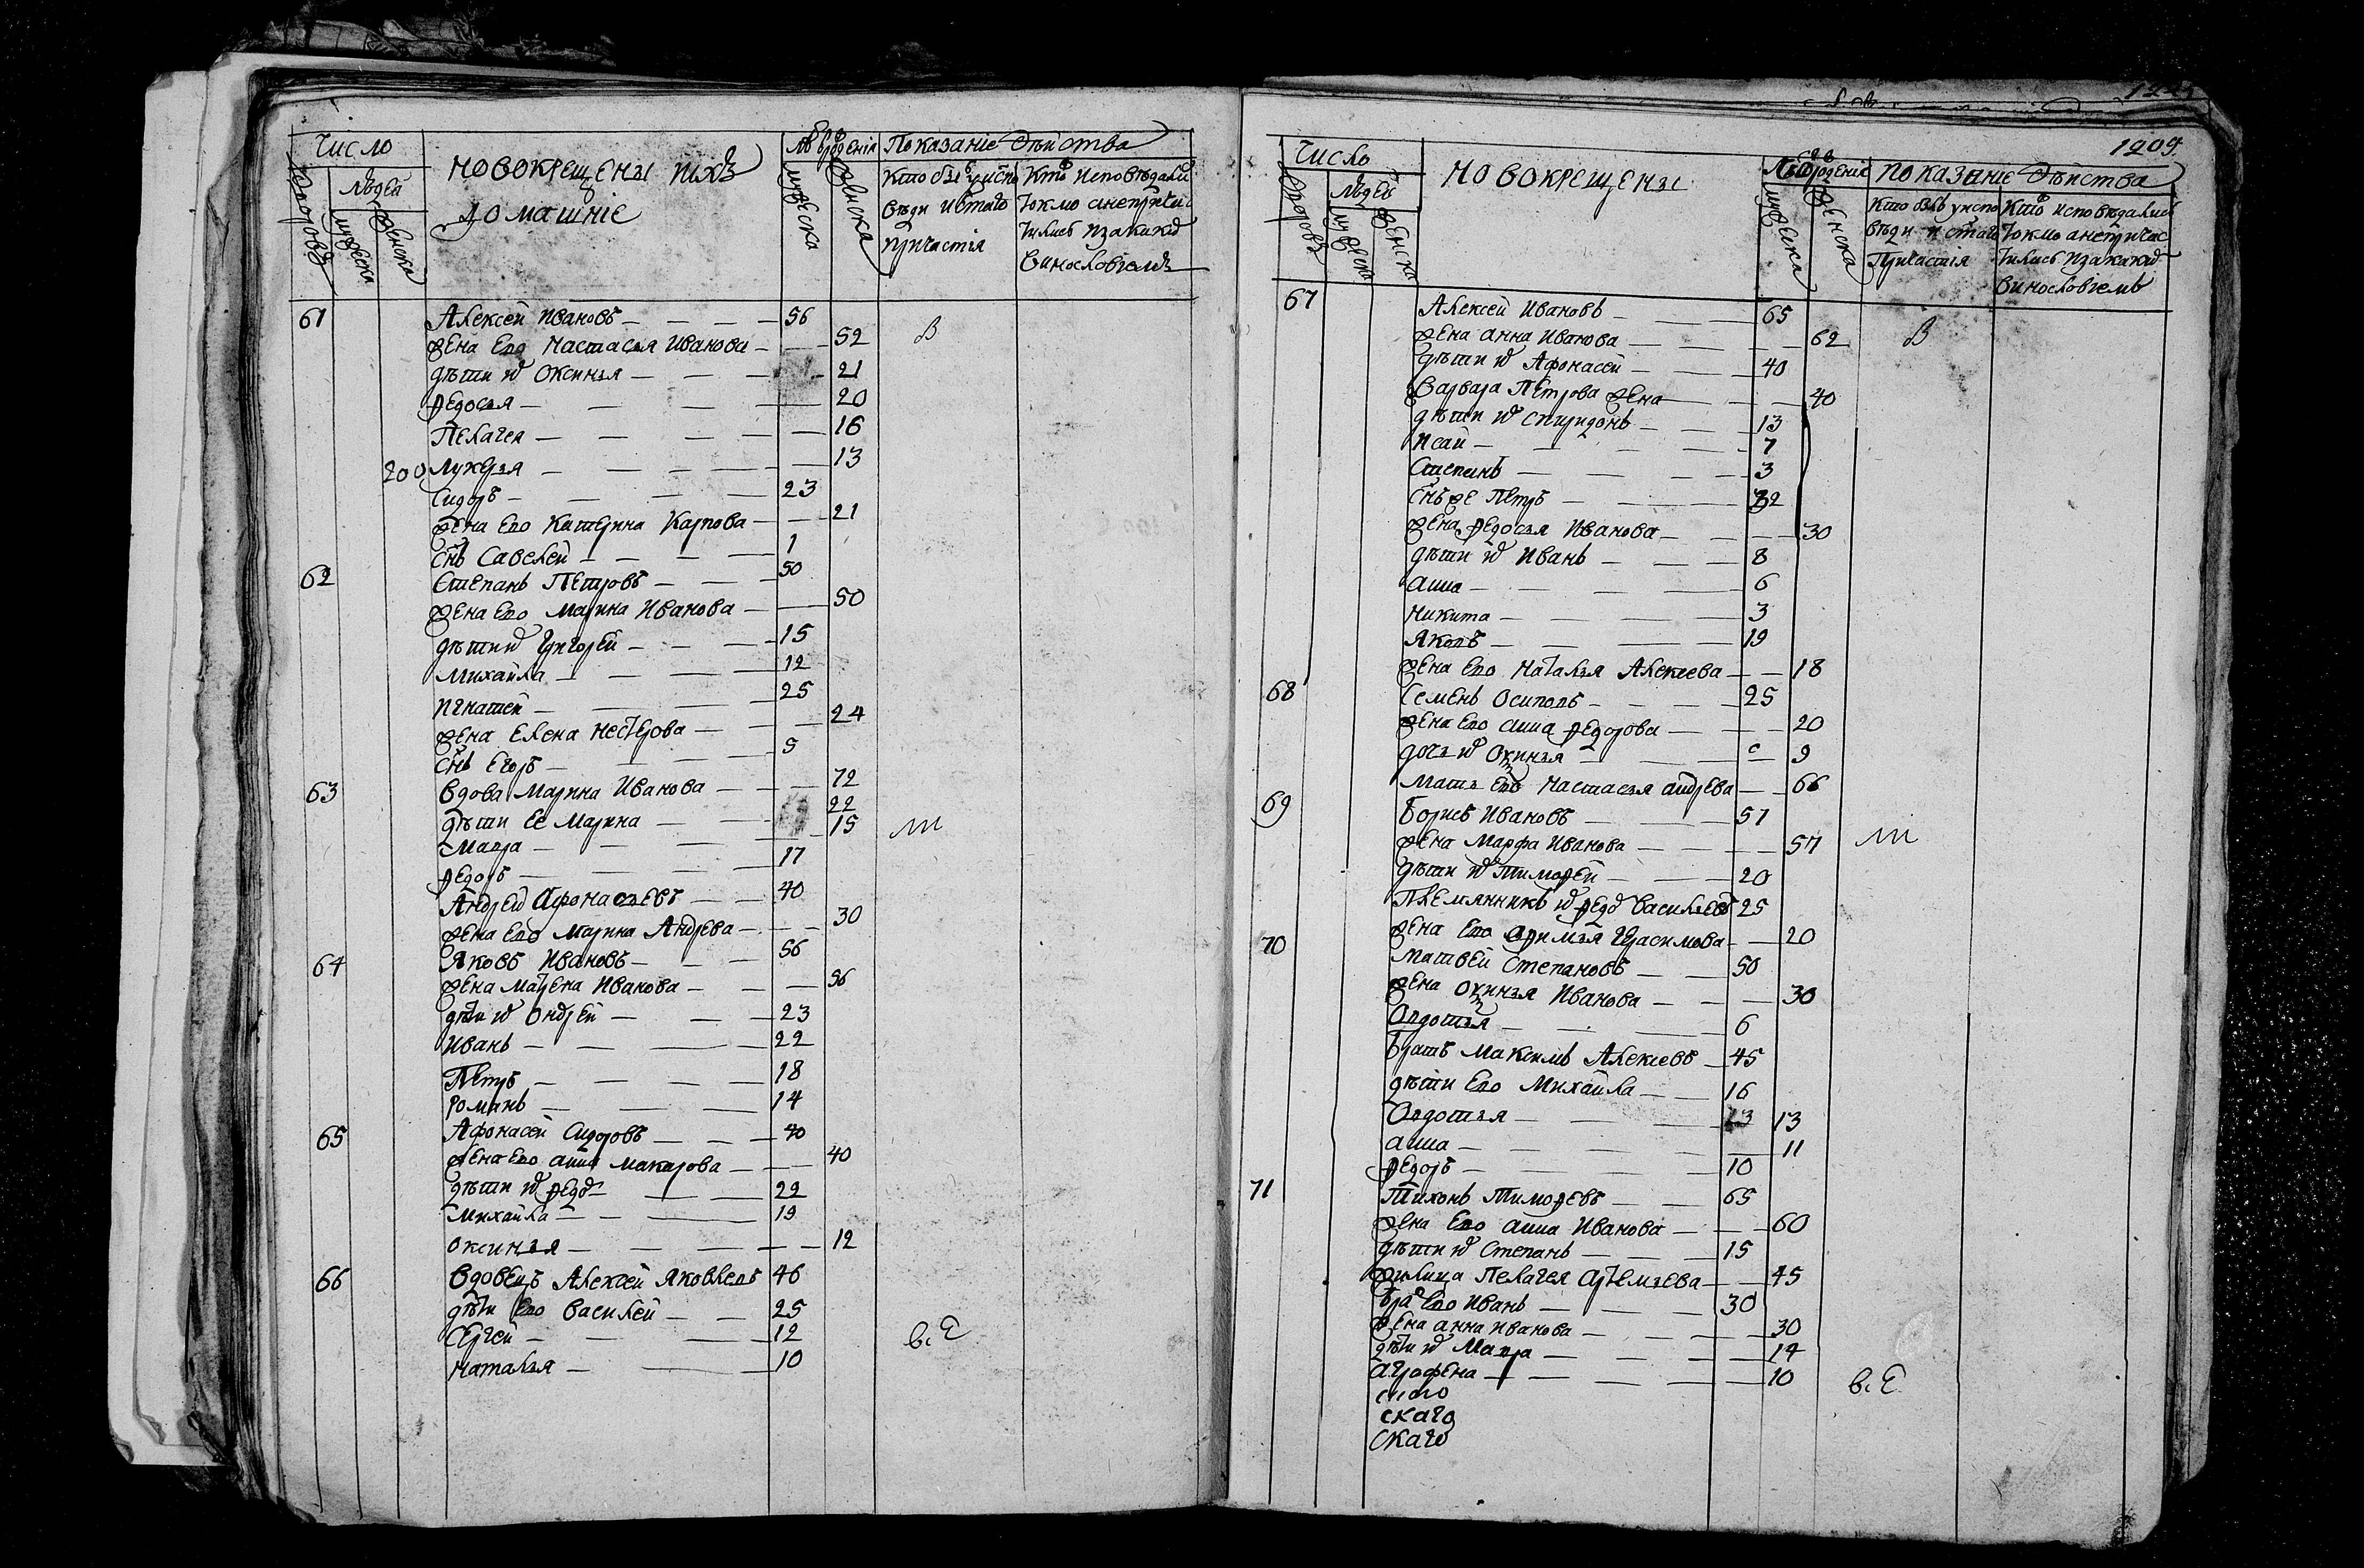 Число
Людей
дворовъ
мужеска
женска
новокрещены ихъ
домашніе
мужеска
женска
Показаніе действа
Кто былъ у испо
веди и стаго
причастія
Кто исповедали
токмо а непричас
тились и за каким
винословіемъ
61 Алексей Ивановъ 56
жена ево Настасья Иванова 52 В
дети их Оксинья 21
Федосья 20
Пелагея 16
200 Лукерья 13
Сидоръ 23
жена ево Катерина Карпова 21
снъ Савелей 1
62 Степанъ Петровъ 50
жена ево Марина Иванова 50
дети их Григорей 15
Михайла 12
Игнатей 25
жена Елена Нестерова 24
снъ Егоръ 5
63 Вдова Марина Иванова 72
дети ее Марина 22
Мавра 15 м
Федоръ 17
Андрей Афонасьевъ 40
жена ево Марина Андрева 30
64 Яковъ Ивановъ 56
жена Матрена Иванова 56
дети их Ондрей 23
Иванъ 22
Петръ 18
Романъ 14
65 Афонасей Сидоровъ 40
жена ево Анна Макарова 40
дети их Федор 22
Михайла 19
Оксинья 12
66 Вдовецъ Алексей Яковлевъ 46
дети ево Василей 25
Сергей 12 в. Е
Наталья 10
1209
Число
Людей
дворовъ
мужеска
женска
новокрещены
мужеска
женска
показаніе действа
Кто былъ у испо
веди и стаго
Причастія
Кто исповедались
токмо а непричас
тились и за каким
винословіемъ
67 Алексей Ивановъ 65
жена Анна Иванова 62 В
дети их Афонасей 40
Варвара Петрова жена 40
дети их Спиридонъ 13
Исай 7
Степанъ 3
снъ же Петръ 32
жена Федосья Иванова 30
дети их Иванъ 8
Анна 6
Никита 3
Яковъ 19
жена ево Наталья Алексеева 18
68 Семенъ Осиповъ 25
жена ево Анна Федорова 20
дочь их Оксинья 9
Мать ево Настасья Андрева 66
69 Борисъ Ивановъ 57
жена Марфа Иванова 57 м
дети их Тимофей 20
Племянникъ их Федор Васильевъ 25
жена ево Гарасимова 20
70 Матвей Степановъ 50
жена Оксинья Иванова 30
Овдотья 6
Братъ Максимъ Алексеевъ 45
дети ево Михайла 16
Овдотья 13 13
Анна 11
Федоръ 10
71 Тихонъ Тимофевъ 65
жена ево Анна Иванова 60
дети их Степанъ 15
Пелагея Артемьева 45
брат ево Иванъ 30
жена Анна Иванова 30
дети их Мавра 14
Аграфена 10 в. Е
скаго
скаго